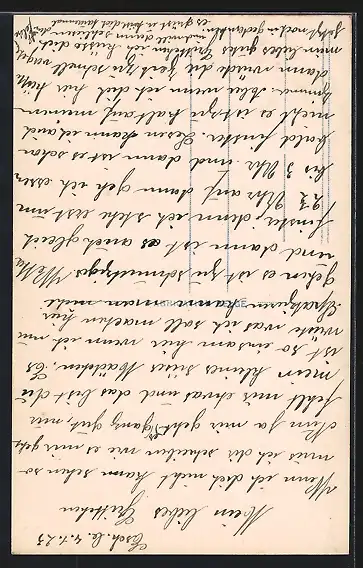 Esch. le 4.1.23
Mein liebes Grittchen
Wenn ich dich nicht kann sehen so
muss ich dir schreiben wie es mir geht
Nun ja mir geht es ganz gut, nur
fehlt mir etwas und das bist du
mein kleines süses Mädchen. Es
ist so einsam hier wenn ich nur
wüste was ich soll machen hier
Spatzieren kann man nicht
gehen es ist zu schmutziges Wetter
und dann ist es auch gleich
finster, denn ich stehe erst um
Uhr auf dann geh ich essen
bis 3 Uhr. und dann ist es schon
bald finster. Lesen kann ich auch
nicht es ist zu kalt auf meinem
Zimmer. Aber wenn ich dich hier hätte
dann würde die Zeit zu schnell vergehen
mein liebes gutes Grittchen ich küsse dich
jetzt noch in gedanken
es grüst u. küsst dich